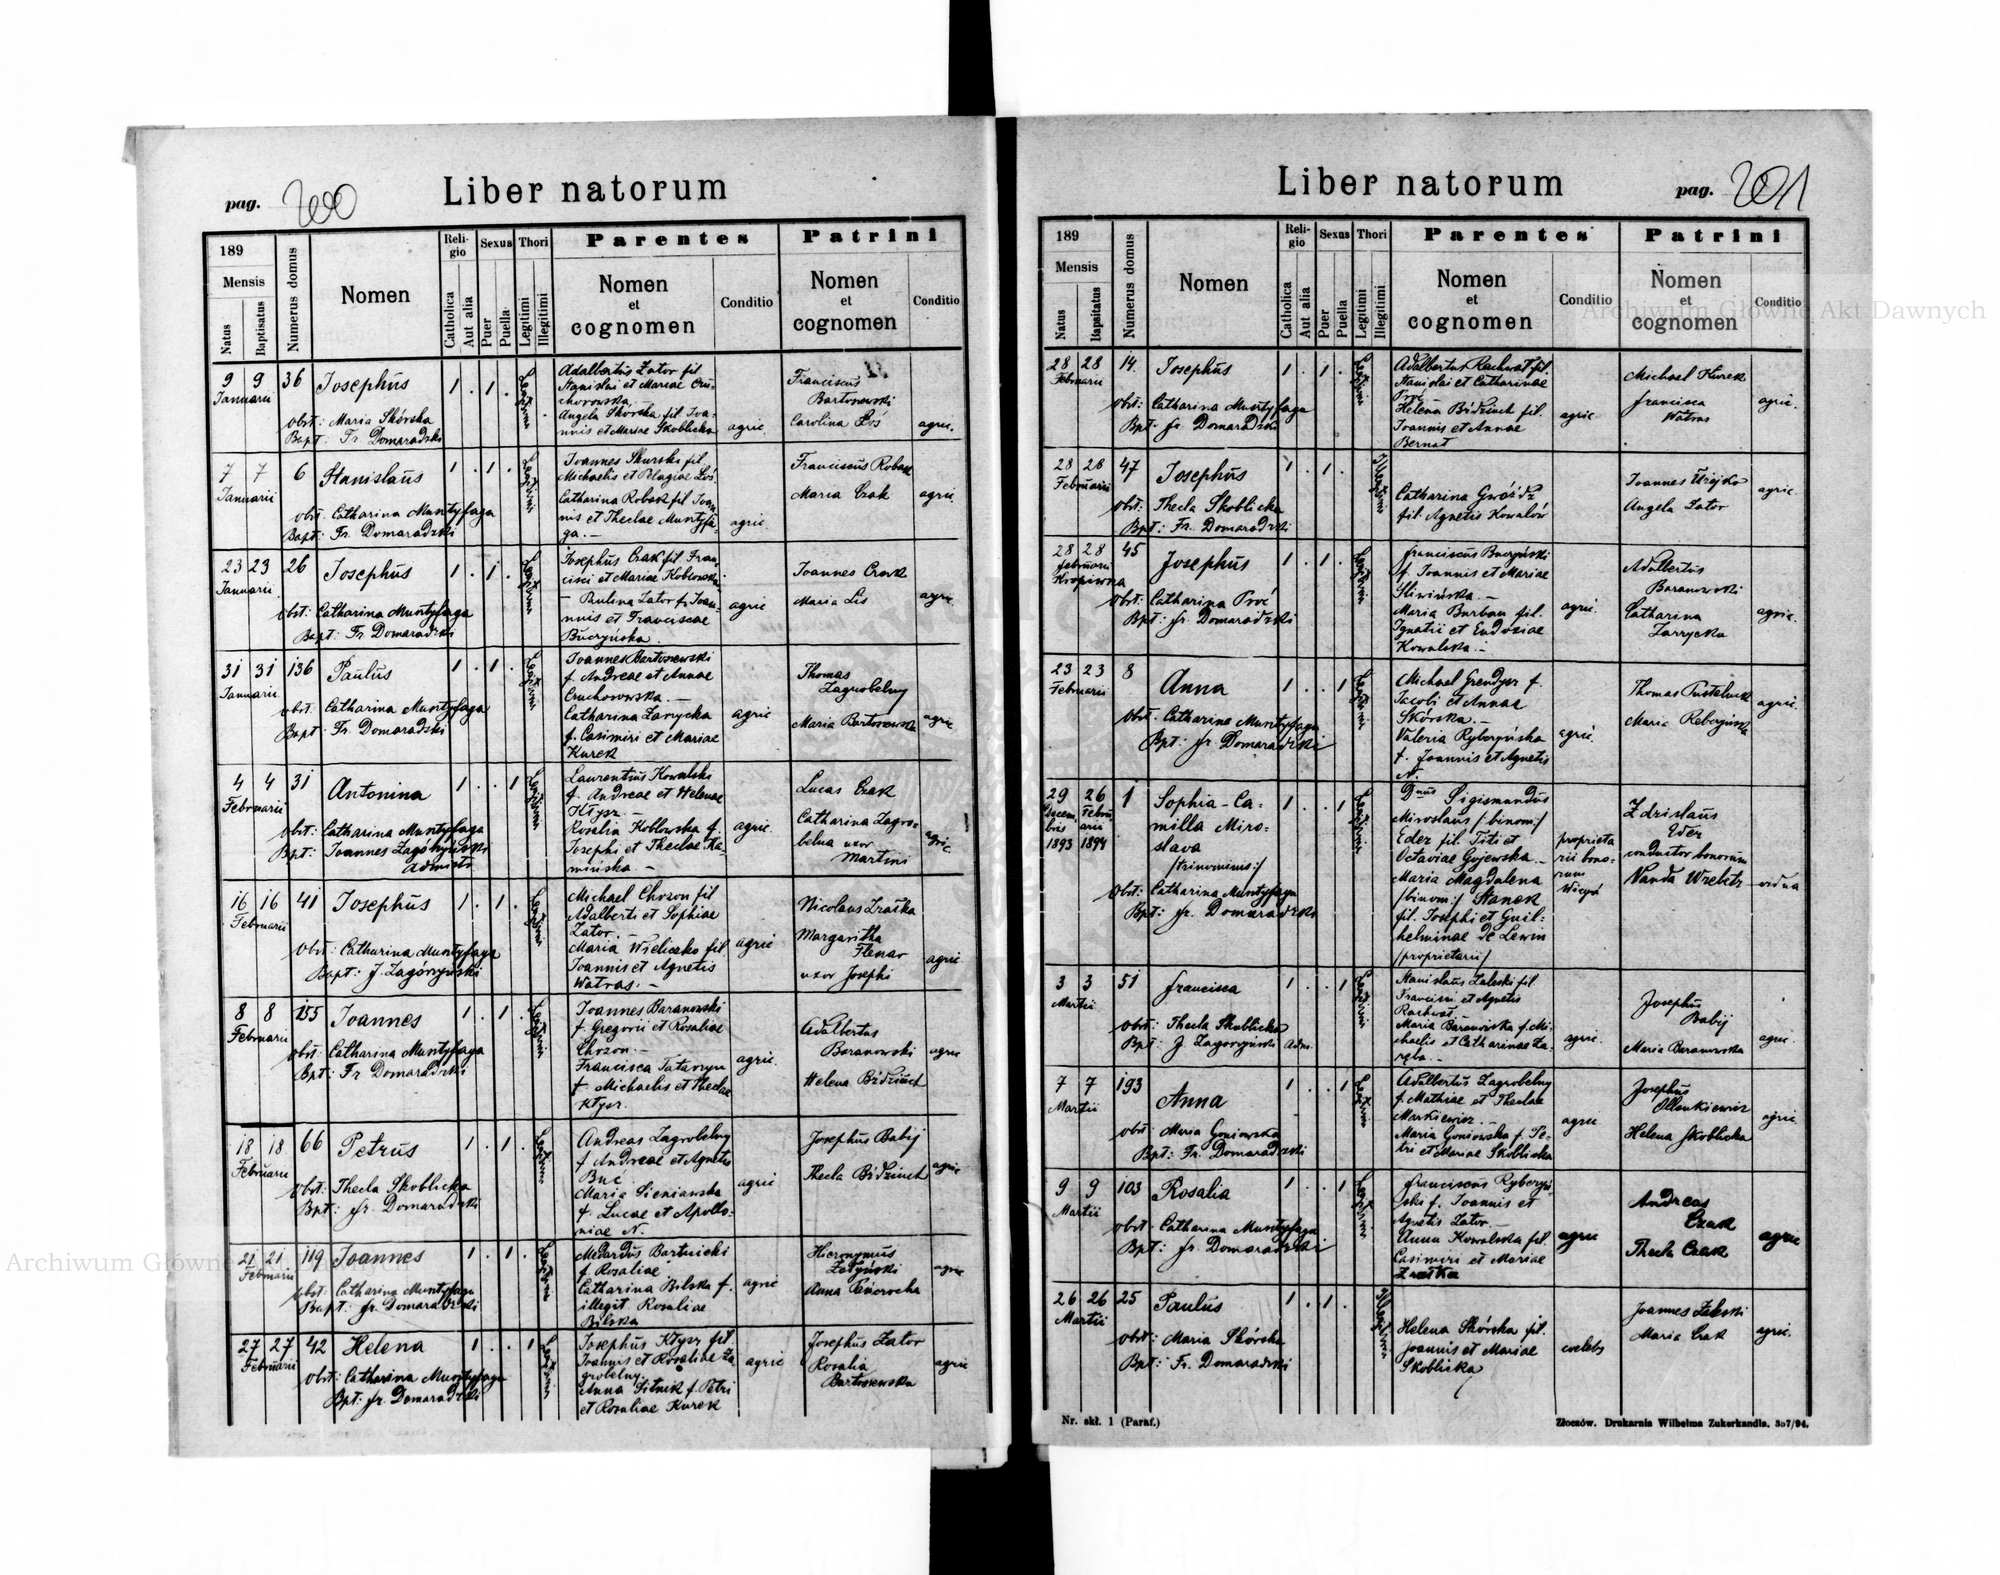 pag. 200
Liber natorum
189
Mensis
Natus
Baptisatus
Numerus domus
Nomen
Religio
Catholica
Aut alia
Sexus
Puer
Puella
Thori
Legitimi
Illegitimi
Parentes
Nomen
et
cognomen
Conditio
Patrini
Nomen
et
cognomen
Conditio
9 9 36 Josephus 1 . 1 .
Januarii
obst: Maria Skórska
Bapt: Fr. Domaradzki
Legitimi
Adalbertus Zator fil.
Stanislai et Mariae
Angela Skórska fil. Joa-
nnis et Mariae Skoblicka
agric.
Franciscus
Bartoszewski
Carolina Łoś
agric.
7 7 6 Stanislaus 1 . 1 .
Januarii
obst: Catharina Muntyfaga
Bapt: Fr. Domaradzki
Legitimi
Joannes Skurski fil
Michaelis et Pelagiae Łoś.
Catharina Robak fil Joan-
nis et Theclae Muntyfa-
ga. —
agric.
Franciscus Robak
Maria Czak
agric.
23 23 26 Josephus 1 . 1 .
Januarii
obst: Catharina Muntyfaga
Bapt: Fr. Domaradzki
Legitimi
Josephus Czak fil. Fran-
cisci et Mariae Koblowska
— Paulina Zator f. Joan-
nis et Franciscae
Buczyńska
agric
Joannes Czak
Maria Lis
agric.
31 31 136 Paulus 1 . 1 .
Januarii
obst: Catharina Muntyfaga
Bapt: Fr. Domaradzki
Legitimi
Joannes Bartoszewski
f. Andreae et Annae
Czuchorowska. —
Catharina Zarycka
f. Casimiri et Mariae
Kurek
agric
Thomas
Zagrobelny
Maria Bartoszewska
agric
4 4 31 Antonina 1 . . 1
Februarii
obst: Catharina Muntyfaga
Bpt: Joannes Zagórzyński
Legitimi
Laurentius Kowalski
f. Andreae et Helenae
Kłysz —
Rosalia Koblowska f.
Josephi et Theclae Ka-
mińska —
agric
Lucas Czak
Catharina Zagro-
belna uxor
Martini
agric
16 16 41 Josephus 1 . 1 .
Februarii
Obst: Catharina Muntyfaga
Bapt: J. Zagórzyński
Legitimi
Michael Chozon fil
Adalberti et Sophiae
Zator. —
Maria Wieliczko fil
Joannis et Agnetis
Watras. —
agric
Nicolaus Zratka
Margaritha
uxor Josephi
agric.
8 8 155 Joannes 1 . 1 .
Februarii
obst: Catharina Muntyfaga
Bpt: Fr Domaradzki
Legitimi
Joannes Baranowski
f. Gregorii et Rosaliae
Chozon. —
Francisca
f. Michaelis et Theclae
Kłysz.
agric.
Adalbertus
Baranowski
Helena Bidziuch
agric
18 18 66 Petrus 1 . 1 .
Februarii
obst: Thecla Skoblicka
Bpt: Fr. Domaradzki
Legitimi
Andreas Zagrobelny
f. Andreae et Agnetis
Buć
Maria Sieniawska
f. Lucae et Apollo-
niae N.
agric
Josephus Babij
Thecla Bidziuch
agric
21 21 119 Joannes 1 . 1 .
Februarii
obst: Catharina Muntyfaga
Bapt: Fr. Domaradzki
Legitimi
Medardus Bartnicki
f. Rosaliae
Catharina Bilska f.
illegit Rosaliae
Bilska
agric
Hieronymus
Anna
agric
27 27 42 Helena 1 . . 1
Februarii
obst: Catharina Muntyfaga
Bpt: Fr. Domaradzki
Legitimi
Josephus Kłysz fil.
Joannis et Rosaliae Za
grobelny.
Anna Sitnik f. Petri
et Rosaliae Kurek
agric
Josephus Zator
Rosalia
Bartoszewska
agric
Liber natorum
pag. 201
189
Mensis
Natus
Bapsitatus
Numerus domus
Nomen
Religio
Catholica
Aut alia
Sexus
Puer
Puella
Thori
Legitimi
Illegitimi
Parentes
Nomen
et
cognomen
Conditio
Patrini
Nomen
et
cognomen
Conditio
28 28 14. Josephus 1 . 1 .
Februarii
obst: Catharina Muntyfaga
Bpt: Fr. Domaradzki
Legitimi
Adalbertus Rachwał fil.
Stanislai et Catharinae
Proć
Helena Bidziuch fil.
Joannis et Annae
Bernat
agric.
Michael Kurek
Francisca
Watras
agric.
28 28 47 Josephus 1 . 1 .
Februarii
obst: Thecla Skoblicka
Bpt: Fr. Domaradzki
Illegitimi
Catharina Gwóźdź
fil. Agnetis Kowalów
Joannes
Angela Zator
agric.
28 28 45 Josephus 1 . 1 .
Februarii
Kropiwna
obst: Catharina Proć
Bpt: Fr. Domaradzki
Legitimi
Franciscus Buczyński
f. Joannis et Mariae
Śliwińska —
Maria Burban fil.
Ignatii et Eudoxiae
Kowalska. —
agric.
Adalbertus
Baranowski
Catharina
Zarycka
agric.
23 23 8 Anna 1 . . 1
Februarii
obst: Catharina Muntyfaga
Bpt: Fr. Domaradzki
Legitimi
Michael Grendysz f.
Jacobi et Annae
Skórska. —
Valeria Rybczyńska
f. Joannis et Agnetis
N.
agric.
Thomas Pustelnik
Maria
agric.
29 26 1 Sophia-Ca-
Decem- Febru-
bris arii
1893 1894
milla Miro-
slava
/trinominis:/
1 . . 1
Obst: Catharina Muntyfaga
Bpt: Fr. Domaradzki
Legitimi
Dnus Sigismundus
Miroslaus /binom:/
Eder fil. Titi et
Octaviae Gojewska. —
Maria Magdalena
/binom:/ Stanek
fil. Josephi et Guil-
helminae de Lewin
/proprietarii/
proprieta
rii bono-
rum
Wicyń
Zdzislaus
Eder
conductor bonorum
Vanda Wrelitz — vidua
3 3 51 Francisca 1 . . 1
Martii
obst: Thecla Skoblicka
Bpt: J. Zagórzyński Adm.
Legitimi
Stanislaus Zaleski fil
Francisci et Agnetis
Rachwał
Maria Baranowska f. Mi-
chaelis et Catharinae Za-
ręba. —
agric.
Josephus
Babij
Maria Baranowska
agric.
7 7 193 Anna 1 . . 1
Martii
obst: Maria Goniowska
Bpt: Fr. Domaradzki
Legitimi
Adalbertus Zagrobelny
f. Mathiae et Theclae
Markiewicz. —
Maria Goniowska f. Pe-
tri et Mariae Skoblicka
agric
Josephus
Helena Skoblicka
agric
9 9 103 Rosalia 1 . . 1
Martii
obst: Catharina Muntyfaga
Bpt: Fr. Domaradzki
Legitimi
Franciscus Rybczyń-
ski f. Joannis et
Agnetis Zator. —
Anna Kowalska fil
Casimiri et Mariae
Zratka
agric
Andreas
Czak
Thecla Czak
agric
26 26 25 Paulus 1 . 1 .
Martii
obst: Maria Skórska
Bpt: Fr. Domaradzki
Illegitimi
Helena Skórska fil.
Joannis et Mariae
Skoblicka
coelebs
Joannes Zaleski
Maria Czak
agric.
Nr. skł. 1 (Paraf.)
Złoczów. Drukarnia Wilhelma Zukerkandla. 357/94.
Archiwum Główne Akt Dawnych
Archiwum Główne